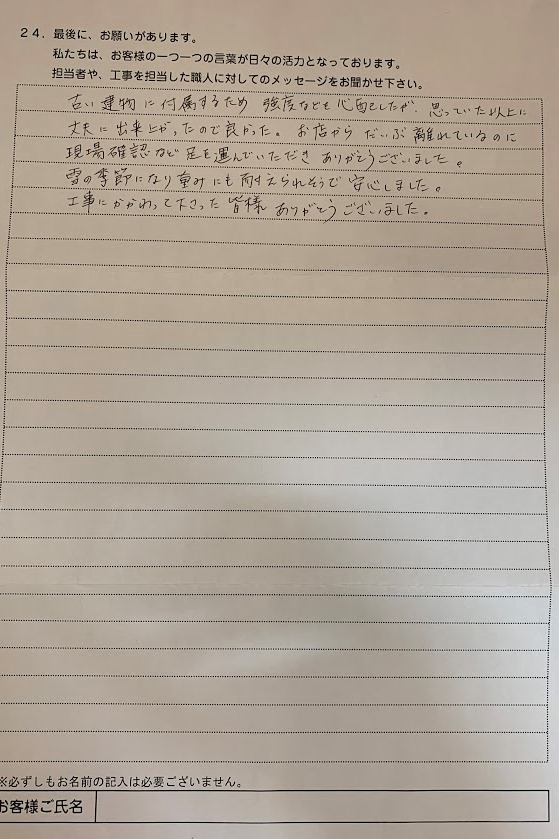 ２４．最後に、お願いがあります。
私たちは、お客様の一つ一つの言葉が日々の活力となっております。
担当者や、工事を担当した職人に対してのメッセージをお聞かせ下さい。
古い建物に付属するため 強度なども心配でしたが、思っていた以上に
丈夫に出来上がったので良かった。お店から だいぶ離れているのに
現場確認など足を運んでいただき ありがとうございました。
雪の季節になり重みにも耐えられそうで 安心しました。
工事にかかわって下さった 皆様 ありがとうございました。
※必ずしもお名前の記入は必要ございません。
お客様ご氏名